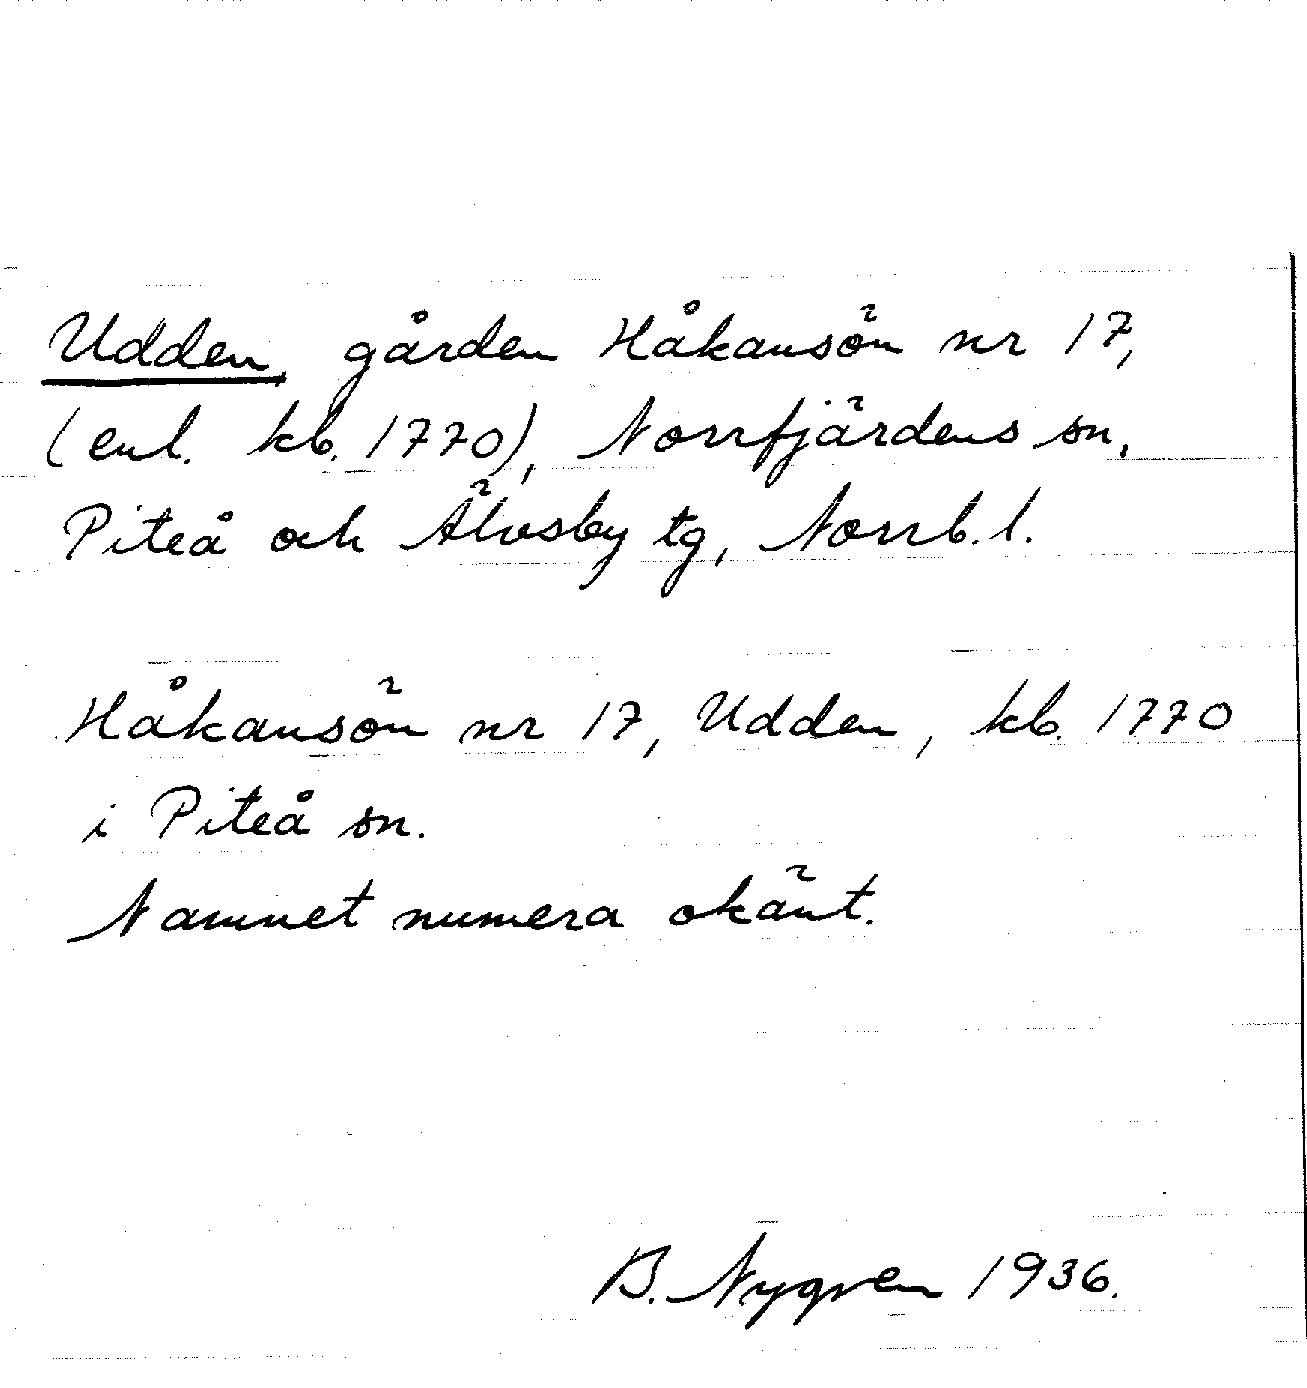 Udden, gården Håkansön nr 17,
(enl. kb. 1770), Norrfjärdens sn,
Piteå och Älvsby tg, Norrb. l.
Håkansön nr 17, Udden, kb. 1770
i Piteå sn.
Namnet numera okänt.
B. Nygren 1936.